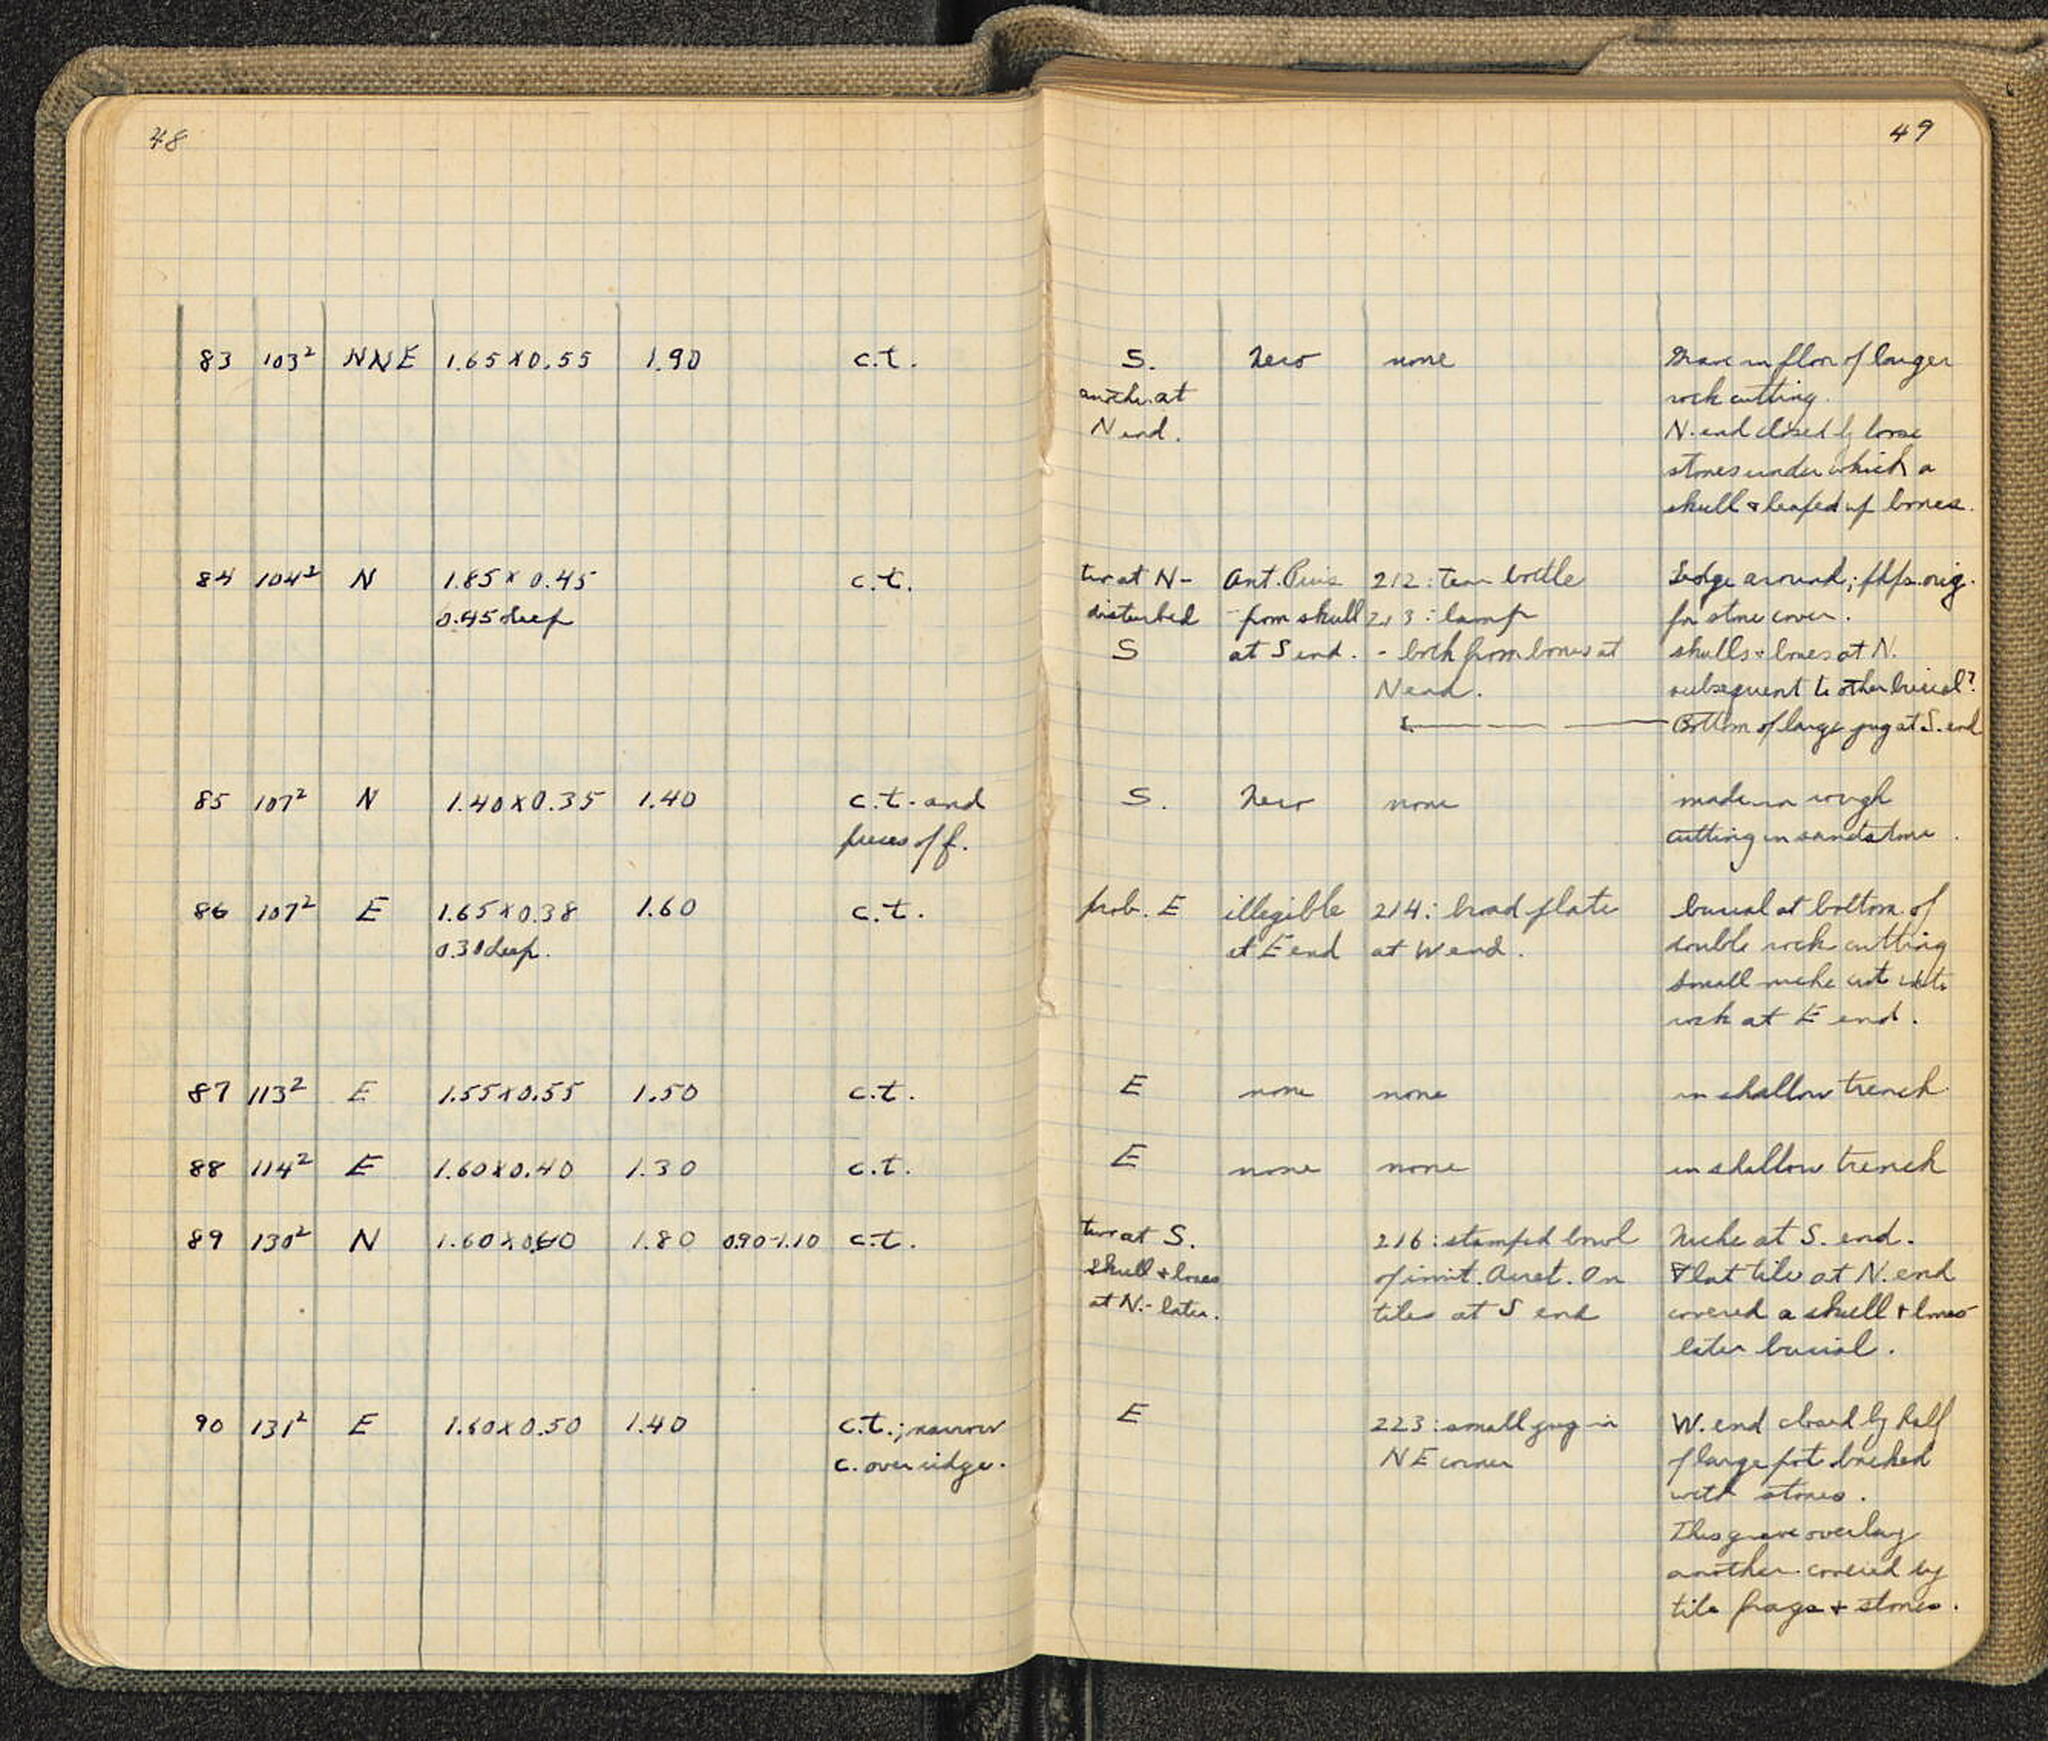 48
49
83 103² NNE 1.65 x 0.55 1.90 c.t. S. Nero none Grave in floor of larger
another at rock cutting.
N end. N. end closed by loose
stones under which a
skull & heaped up bones.
84 104² N 1.85 x 0.45 c.t. two at N- Ant. Pius 212: tear bottle Ledge around;
0.45 deep disturbed - from skull 213: lamp for stone cover.
S at S end. - both from bones at skulls & bones at N.
N end. subsequent to other burial?
Bottom of large jug at S. end
85 107² N 1.40 x 0.35 1.40 c.t. and S. Nero none made in rough
pieces of f. cutting in sandstone.
86 107² E 1.65 x 0.38 1.60 c.t. prob. E illegible 214: broad plate burial at bottom of
0.30 deep. at E end at W end. double rock cutting
small niche cut into
rock at E end.
87 113² E 1.55 x 0.55 1.50 c.t. E none none in shallow trench
88 114² E 1.60 x 0.40 1.30 c.t. E none none in shallow trench
89 130² N 1.60 x 0.60 1.80 0.90-1.10 c.t. two at S. 216: stamped bowl Niche at S. end.
skull & bones of imit. Arret. On Flat tile at N. end
at N.- later. tiles at S end covered a skull & bones
later burial.
90 131² E 1.60 x 0.50 1.40 c.t.; narrow E 223: small jug in W. end closed by half
c. over ridge. NE corner of large pot backed
with stones.
This grave overlay
another covered by
tile frags & stones.